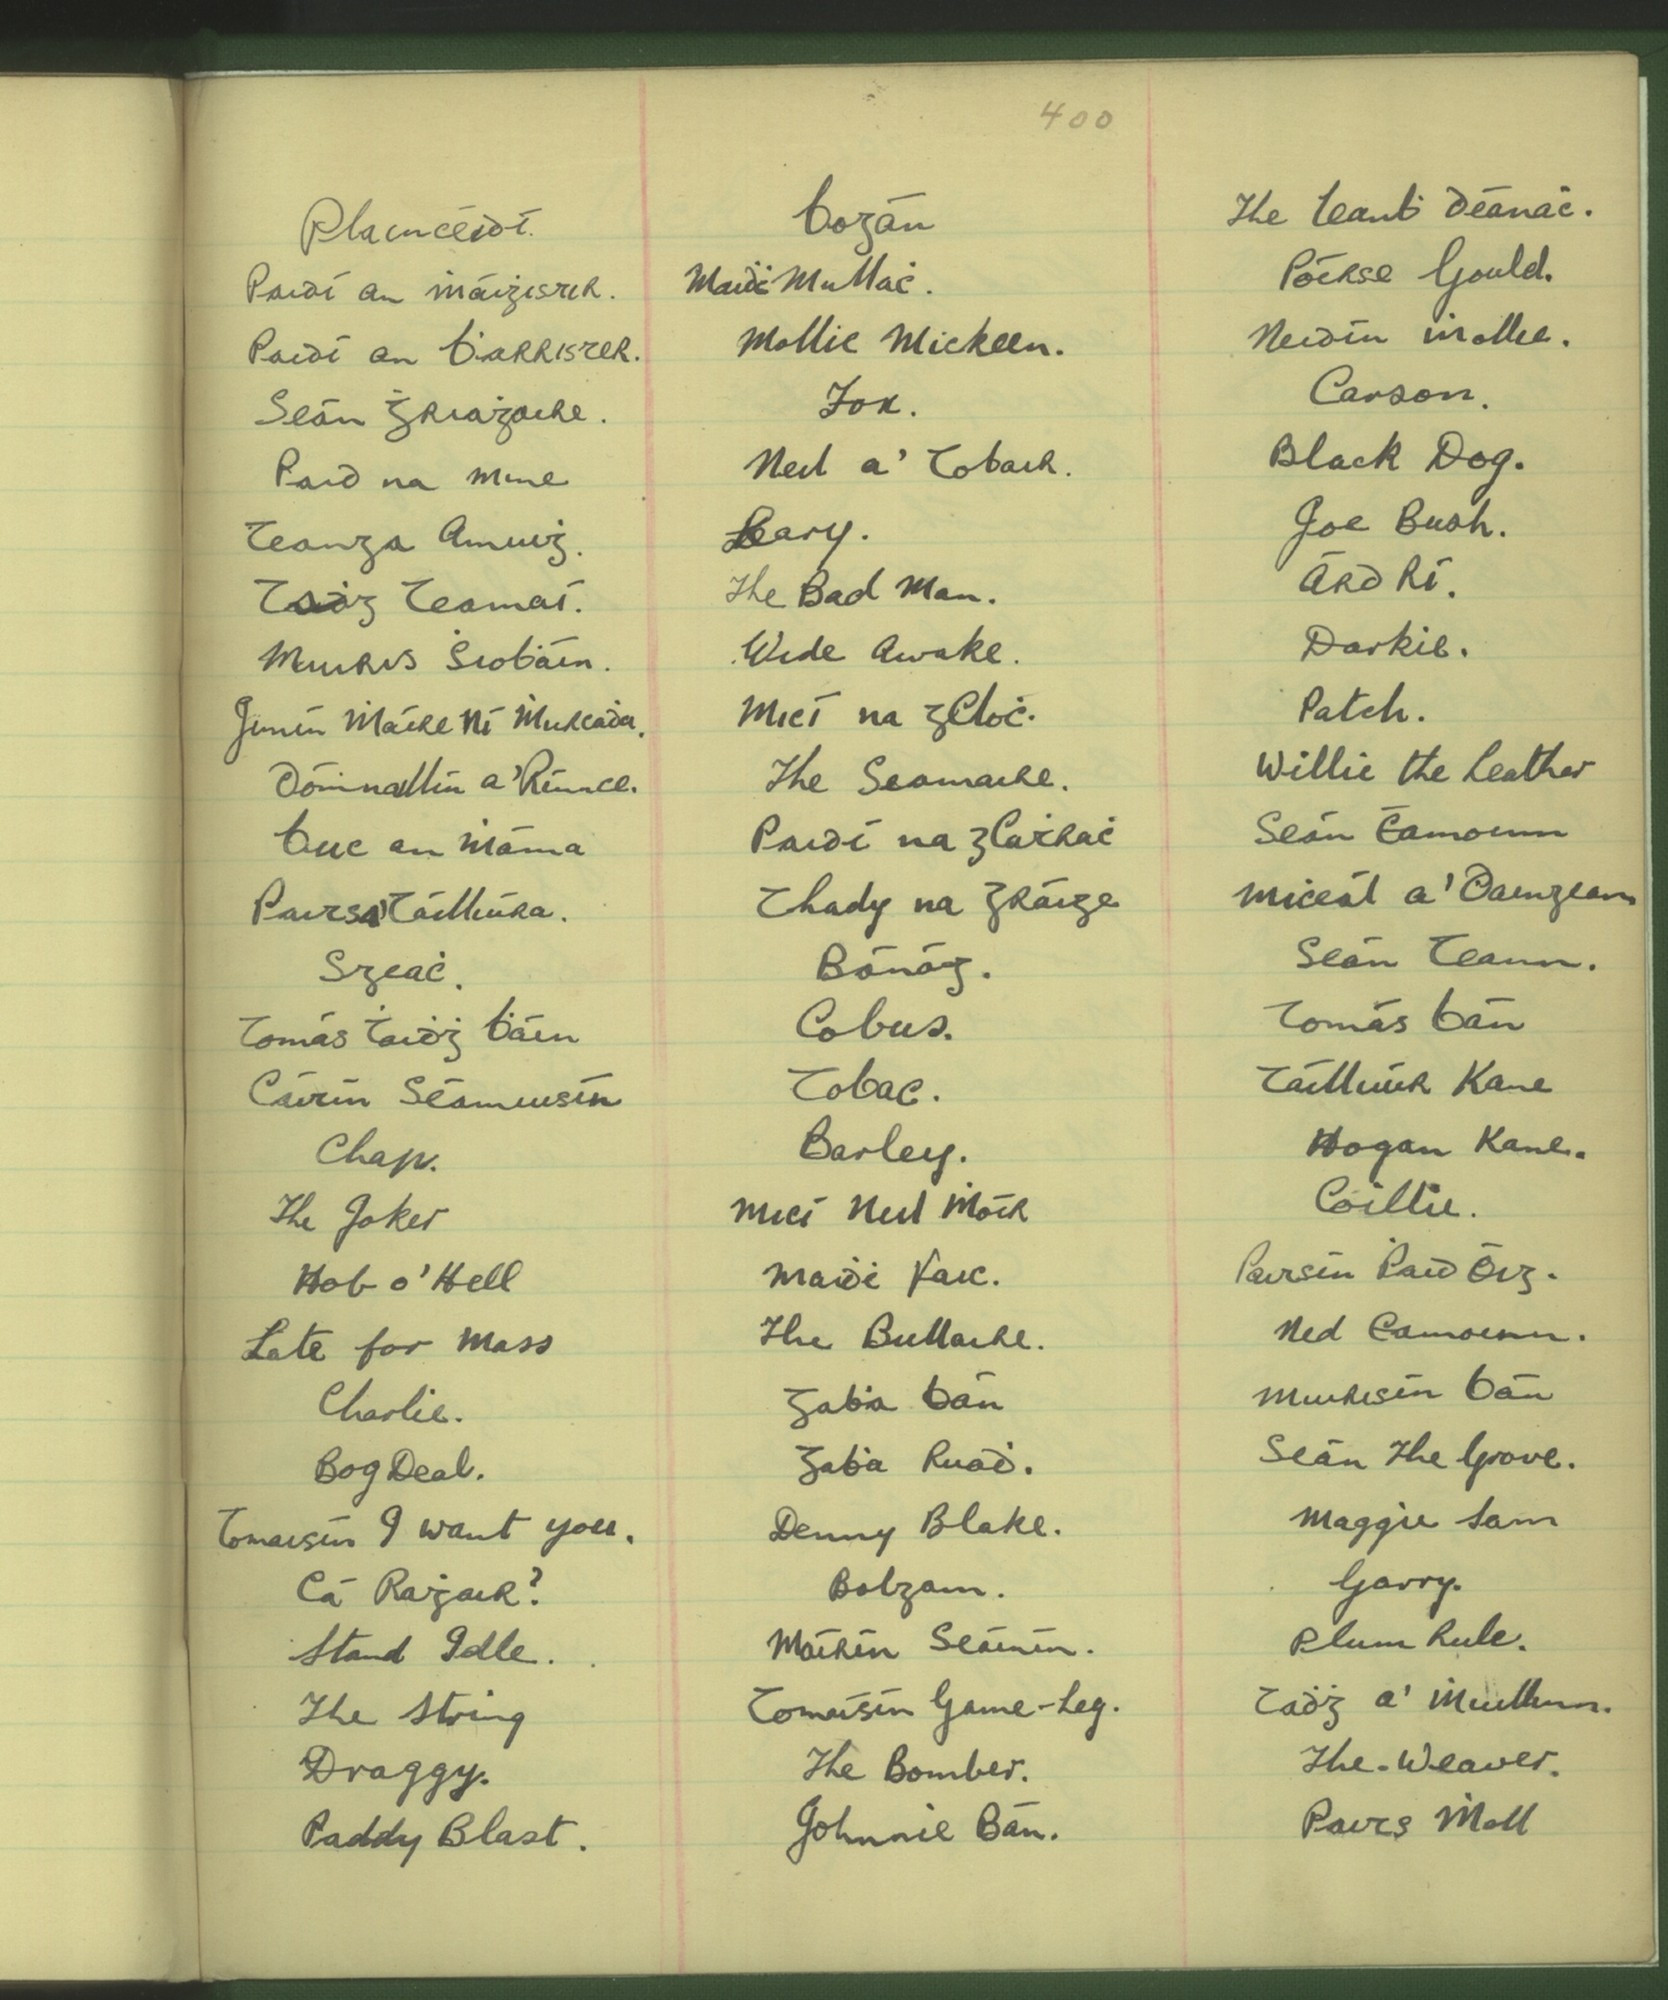 400
Plaincéidí.
Paidí an ṁáigistir.
Paidí an ḃarristér.
Seán Ġriaġaire.
Paid na mine
Teanga Amuiġ.
Taiḋg Teamaí.
Muiris Ṡiobáin.
Jimín Ṁáire Ní Murċaḋa.
Dómnaillín a' Rinnce.
Buc an ṁáma
Paits a' Táilliúra.
Sgeaċ.
Tomás Ṫaiḋg Ḃáin
Cáitín Séamuisín
Chap.
The Joker
Hob o' Hell
Late for Mass
Charlie.
Bog Deal.
Tomaisín I want you.
Cá Raġair?
Stand Idle.
The String
Draggy.
Paddy Blast.
Bogán
Maidí Mullaċ.
Mollie Mickeen.
Fox.
Neil a' Tobair.
Leary.
The Bad Man.
Wide Awake.
Micí na gCloċ.
The Seamaire.
Paidí na gCarraċ
Thady na Gráige
Bánóg.
Cobus.
Tobac.
Barley.
Micí Neil Ṁóir
The Bullaire.
Gaḃa Bán
Gaḃa Ruaḋ.
Denny Blake.
Bolgam.
Máirín Seáinín.
Tomaisín Game-Leg.
The Bomber.
Johnnie Bán.
The Leanḃ Déanaċ.
Póirse Gould.
Neidín Ṁollie.
Carson.
Black Dog.
Joe Bush.
Árd Rí.
Darkie.
Patch.
Willie the Leather
Seán Éamoinn
Miceál a' Daingean
Seán Teann.
Tomás Bán
Táilliúir Kane
Hogan Kane.
Cóillie.
Paitsín Ṗaid Óig.
Ned Eamoinn.
Muirisín Bán
Seán The Grove.
Maggie Sam
Garry.
Plum Rule.
Taḋg a' Ṁuillinn.
The Weaver.
Paits Ṁoll